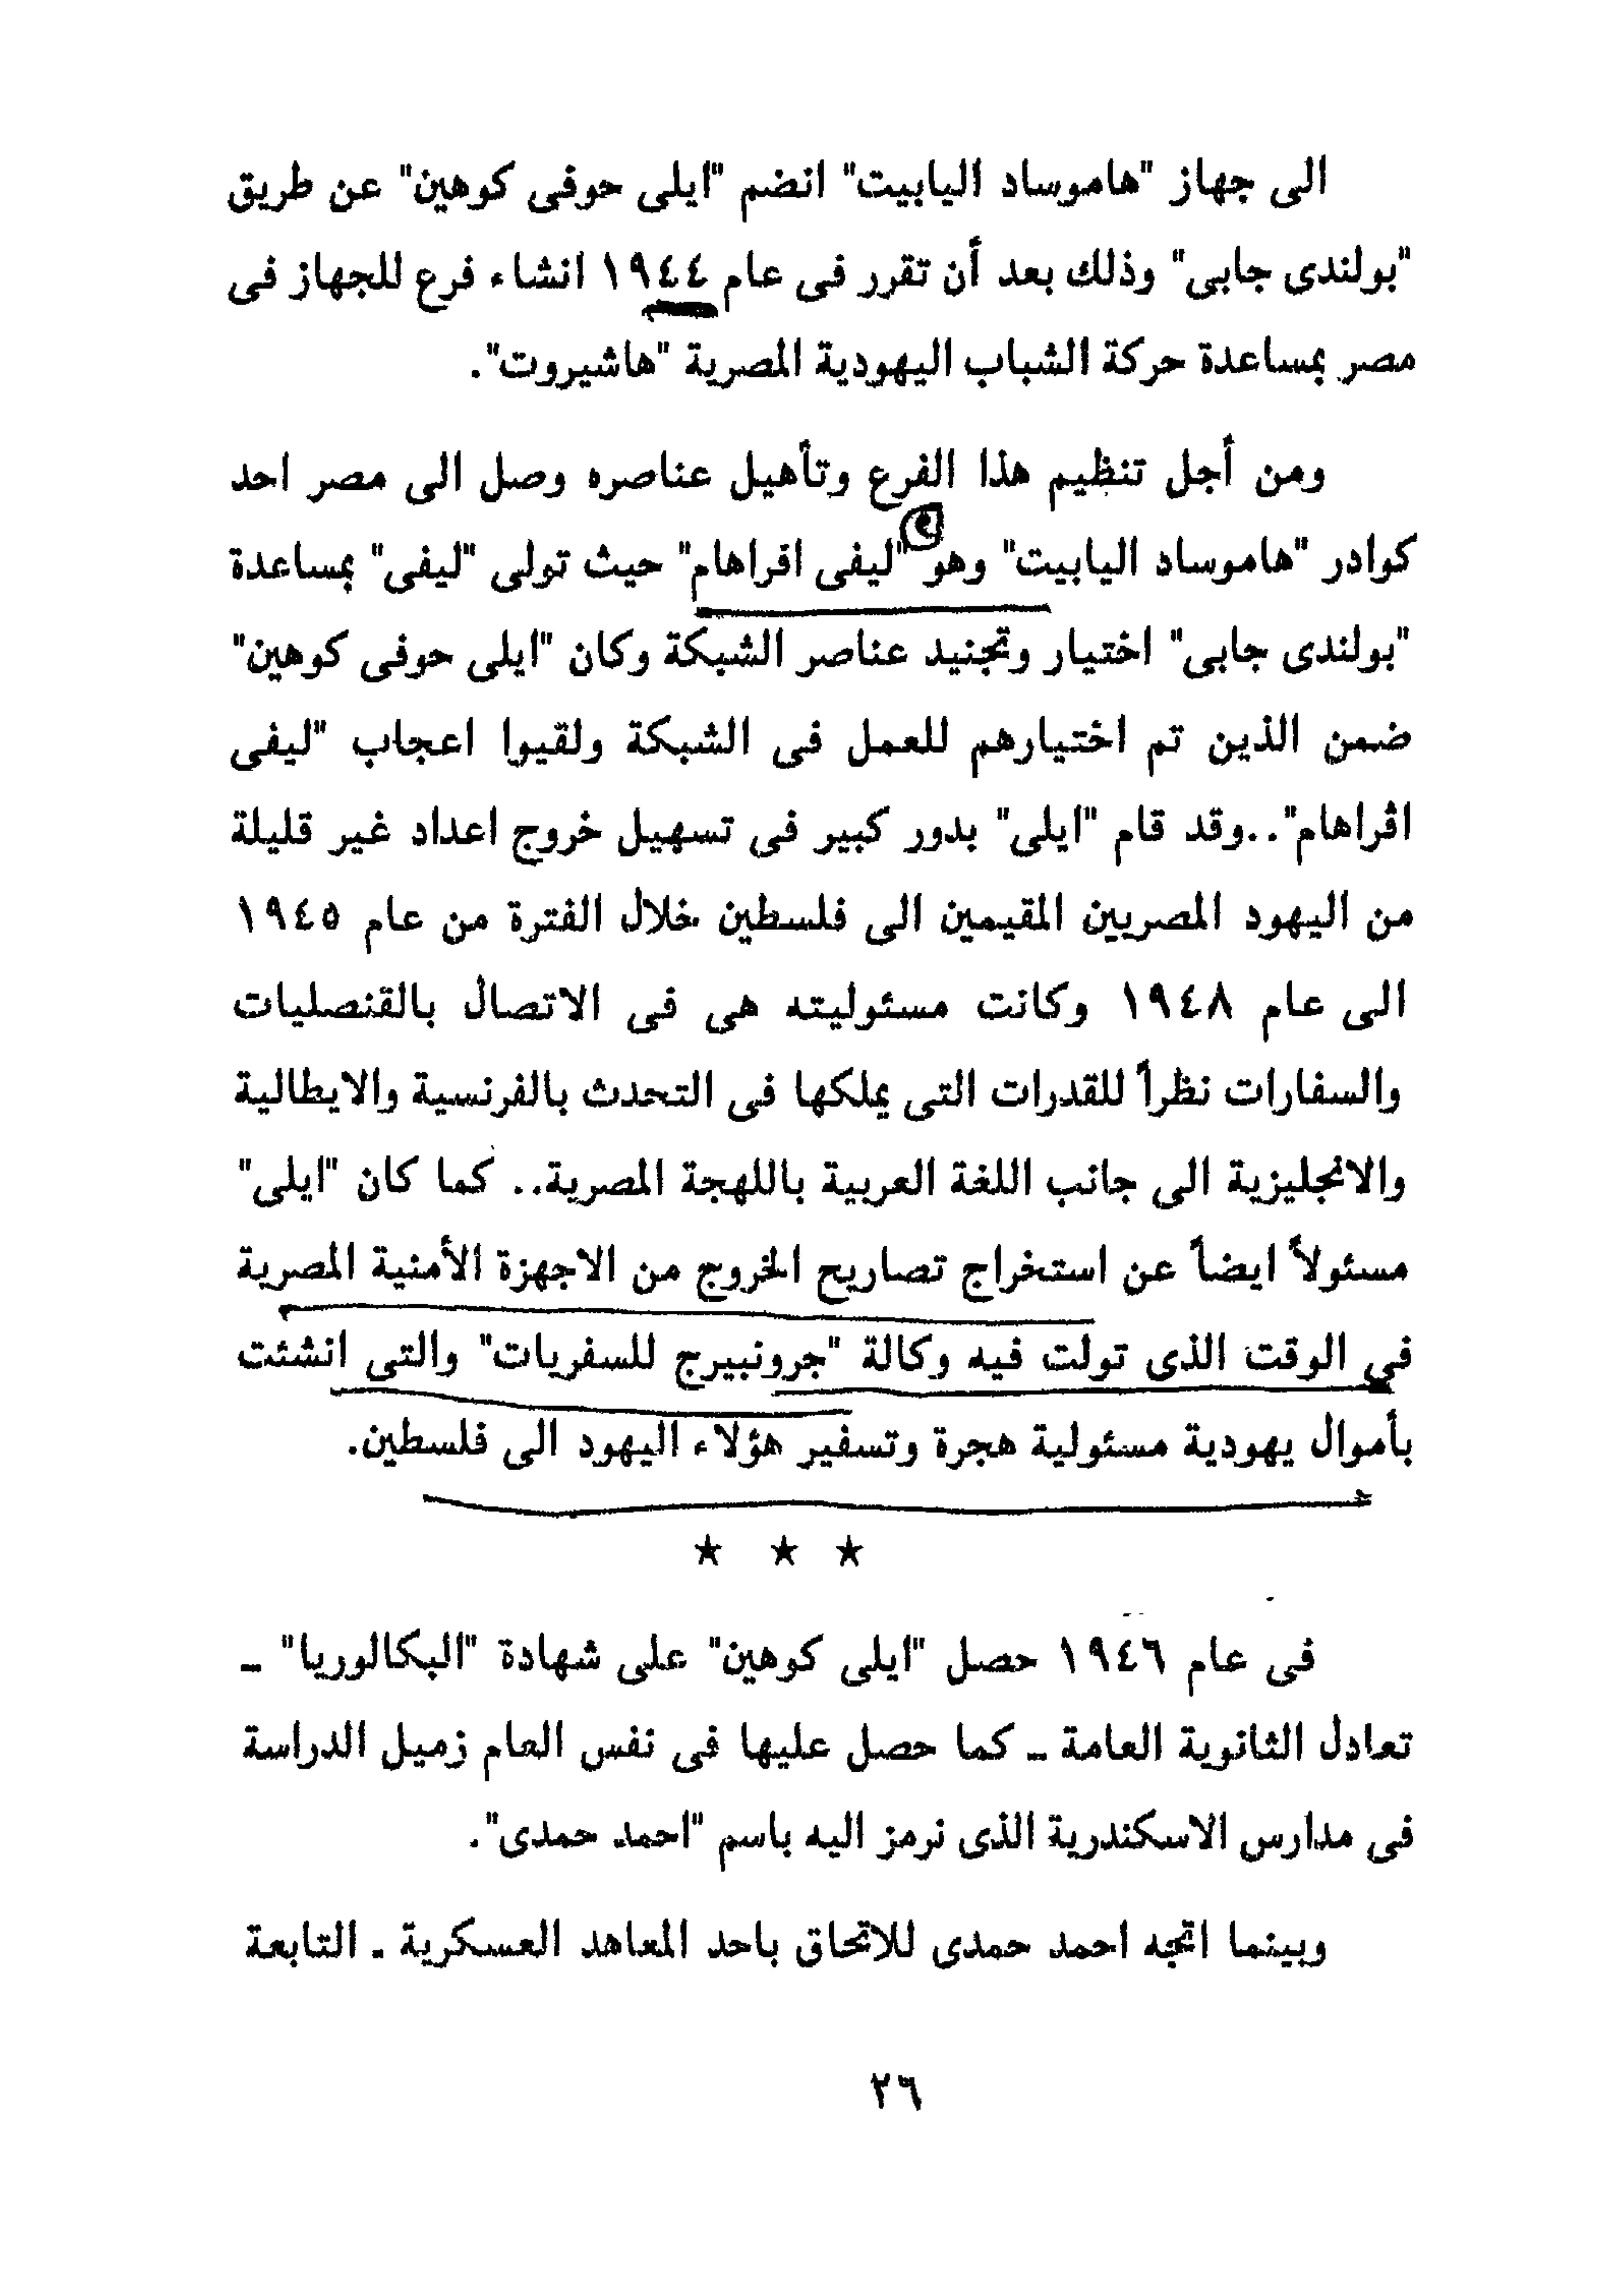 الى جهاز "هاموساد اليابيت" انضم "ايلى حوفى كوهين" عن طريق
"بولندى جابى" وذلك بعد أن تقرر فى عام ١٩٤٤ انشاء فرع للجهاز فى
مصر بمساعدة حركة الشباب اليهودية المصرية "هاشيروت".
ومن أجل تنظيم هذا الفرع وتأهيل عناصره وصل الى مصر احد
كوادر "هاموساد اليابيت" وهو "ليفى افراهام" حيث تولى "ليفى" بمساعدة
"بولندى جابى" اختيار وتجنيد عناصر الشبكة وكان "ايلى حوفى كوهين"
ضمن الذين تم اختيارهم للعمل فى الشبكة ولقيوا اعجاب "ليفى
اڤراهام"..وقد قام "ايلى" بدور كبير فى تسهيل خروج اعداد غير قليلة
من اليهود المصريين المقيمين الى فلسطين خلال الفترة من عام ١٩٤٥
الى عام ١٩٤٨ وكانت مسئوليته هى فى الاتصال بالقنصليات
والسفارات نظراً للقدرات التى يملكها فى التحدث بالفرنسية والايطالية
والانجليزية الى جانب اللغة العربية باللهجة المصرية.. كما كان "ايلى"
مسئولاً ايضاً عن استخراج تصاريح الخروج من الاجهزة الأمنية المصرية
في الوقت الذى تولت فيه وكالة "جرونبيرج للسفريات" والتى انشئت
بأموال يهودية مسئولية هجرة وتسفير هؤلاء اليهود الى فلسطين.
★ ★ ★
فى عام ١٩٤٦ حصل "ايلى كوهين" على شهادة "البكالوريا" ـ
تعادل الثانوية العامة ـ كما حصل عليها فى نفس العام زميل الدراسة
فى مدارس الاسكندرية الذى نرمز اليه باسم "احمد حمدى".
وبينما اتجه احمد حمدى للاتحاق باحد المعاهد العسكرية ـ التابعة
٢٦